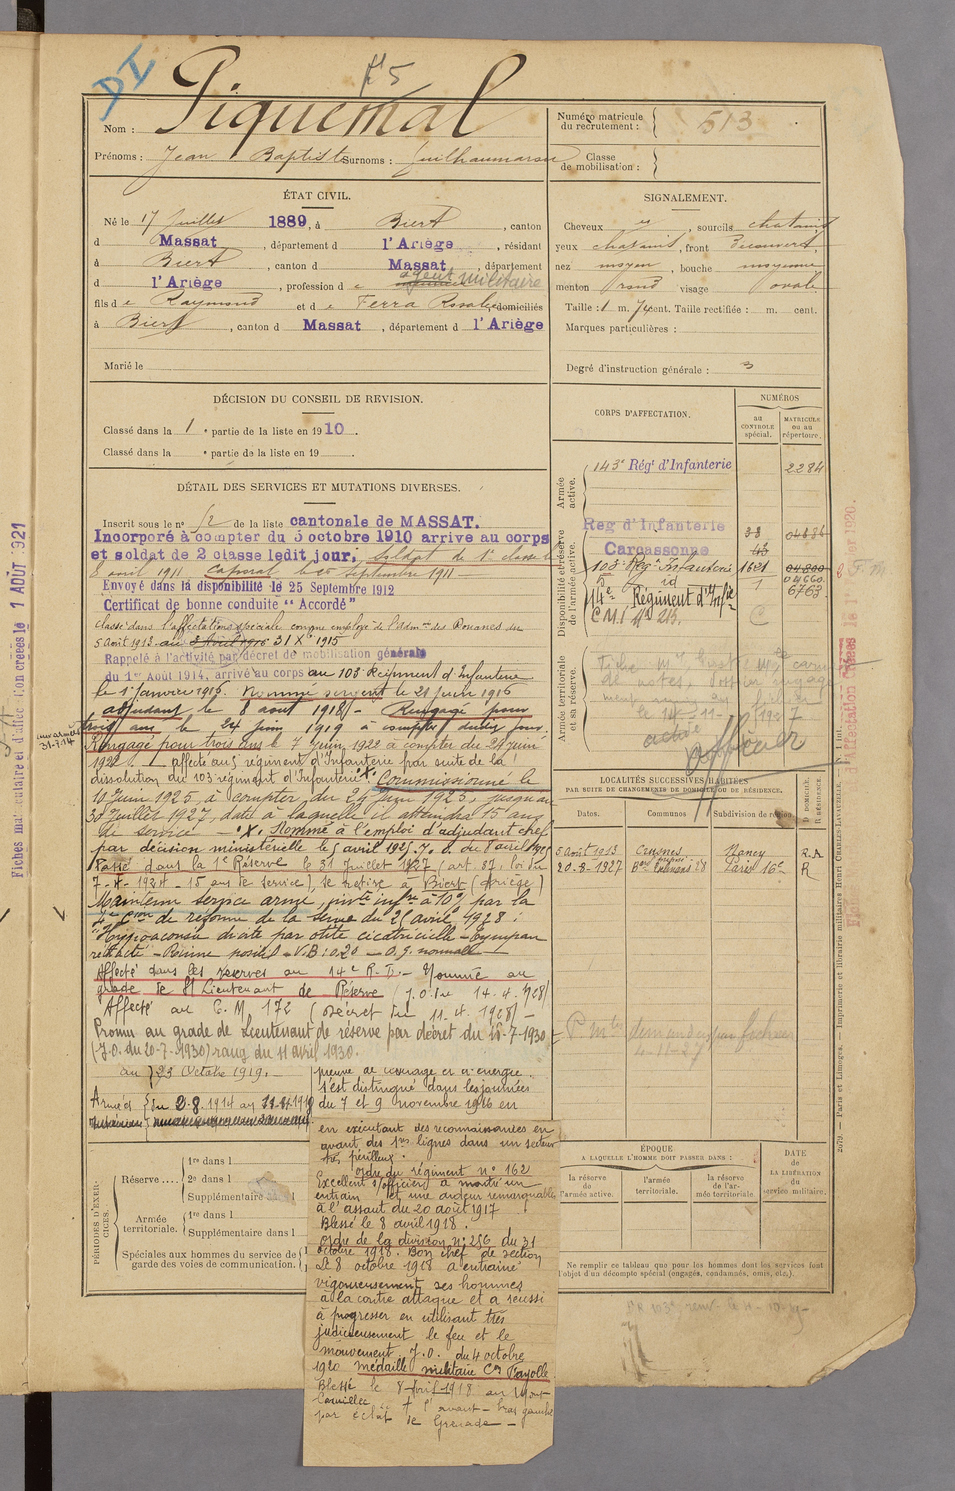 DI
n° 5
Nom : Piquemal
Prénoms : Jean Baptiste Surnoms : Guilhaumarou
Numéro matricule du recrutement : 513
Classe de mobilisation :
ÉTAT CIVIL.
Né le 17 Juillet 1889, à Biert, canton
d Massat, département d l'Ariège, résidant
à Biert, canton d Massat, département
d l'Ariège, profession d e agent militaire
fils d e Raymond et d e Ferra Rosalie, domiciliés
à Biert, canton d Massat, département d l'Ariège
Marié le
SIGNALEMENT.
Cheveux id, sourcils chatains
yeux chatains, front Découvert,
nez moyen, bouche moyenne
menton rond visage ovale
Taille : 1 m. 74 cent. Taille rectifiée : m. cent.
Marques particulières :
Degré d'instruction générale : 3
DÉCISION DU CONSEIL DE REVISION.
Classé dans la 1e partie de la liste en 1910.
Classé dans la e partie de la liste en 19 .
DÉTAIL DES SERVICES ET MUTATIONS DIVERSES.
Inscrit sous le n° 52 de la liste cantonale de MASSAT.
Incorporé à compter du 3 octobre 1910 arrivé au corps
et soldat de 2 classe ledit jour, Soldat de 1e classe le
8 avril 1911 Caporal le 25 Septembre 1911
Envoyé dans la disponibilité le 25 Septembre 1912
Certificat de bonne conduite "Accordé"
Classé dans l'affectation spéciale comme employé de l'Adm on des Douanes du
5 Août 1913 au 31 Xe 1915
Rappelé à l'activité par décret de mobilisation générale
du 1er Août 1914, arrivé au corps au 103 Régiment d'Infanterie
le 1er Janvier 1916. Nommé sergent le 21 juin 1916
adjudant le 8 août 1918 - Rengagé pour
trois ans le 24 juin 1919 à compter dudit jour.
Rengagé pour trois ans le 7 juin 1922 à compter du 24 juin
1922. affecté au 5 régiment d'Infanterie par suite de la
dissolution du 103 régiment d'Infanterie. X. Commissionné le
11 juin 1925, à compter du 24 Juin 1925, jusqu'au
30 juillet 1927, date à laquelle il atteindra 15 ans
de service - X. Nommé à l'emploi d'adjudant chef
par décision ministérielle le 5 avril 1925 J.O. du 8 avril 1925
Passé dans la 1e Réserve le 31 Juillet 1927 (art. 87, loi du
15 ans de service), se retire à Biert (Ariège)
Maintenu service armé, invte infre à 10% par la
4e Cion de réforme de la Seine du 21 avril 1928 :
"Hypoacousie droite par otite cicatricielle - Tympan
rétracté - Rinne positif - V.B : 0.20 - O.G. normale -
Affecté dans les réserves au 14e R.I. - Nommé au
grade de S/Lieutenant de Réserve (J.O. du 14.4.1928)
Affecté au C.M 172 (décret du 11.4.1928) -
Promu au grade de Lieutenant de réserve par décret du 18-7-1930
(J.O. du 20-7-1930) rang du 11 avril 1930.
au 23 Octobre 1919.
du 2.8.1914 au
preuve de courage et d'énergie.
s'est distingué dans les journées
du 7 et 9 novembre 1916 en
en exécutant des reconnaissances en
avant des 1res lignes dans un secteur
très périlleux.
ordre du régiment n° 162
Excellent s/officier, a montré un
entrain et une ardeur remarquables
à l'assaut du 20 août 1917
Blessé le 8 avril 1918.
ordre de la division n° 256 du 31
octobre 1918. Bon chef de section
Le 8 octobre 1918 a entrainé
vigoureusement ses hommes
à la contre attaque et a réussi
à progresser en utilisant très
judicieusement le feu et le
mouvement J.O. du 4 octobre
1920 médaille militaire Cn Fayolle
Blessé le 8 Avril 1918 au Mont
Cornillet à l'avant-bras gauche
par éclat de Grenade -
CORPS D'AFFECTATION.
NUMÉROS
au CONTROLE spécial.
MATRICULE ou au répertoire.
Armée active.
143e Régt d'Infanterie 2284
Disponibilité et réserve de l'armée active.
Reg d'Infanterie
Carcassonne
103e Régt Infanterie 1621
5 id 1 04660
14e Régiment d'Infie 6763
C.M.I n° 213. C
Armée territoriale et sa réserve.
officier
LOCALITÉS SUCCESSIVES HABITÉES
PAR SUITE DE CHANGEMENTS DE DOMICILE OU DE RÉSIDENCE.
Dates. Communes Subdivision de région D. DOMICILE. R. RÉSIDENCE.
5 Août 1913 Crusnes Nancy R.A
20-8-1927 Paris 16e R
ÉPOQUE
A LAQUELLE L'HOMME DOIT PASSER DANS :
la réserve de l'armée active.
l'armée territoriale.
la réserve de l'armée territoriale.
DATE de LA LIBÉRATION du service militaire.
Ne remplir ce tableau que pour les hommes dont les services font
l'objet d'un décompte spécial (engagés, condamnés, omis, etc.).
PÉRIODES D'EXERCICES.
Réserve .... 1re dans l
2e dans l
Supplémentaire dans l
Armée territoriale. 1re dans l
Supplémentaire dans l
Spéciales aux hommes du service de garde des voies de communication.
2679. — Paris et Limoges. — Imprimerie et librairie militaires Henri CHARLES-LAVAUZELLE.